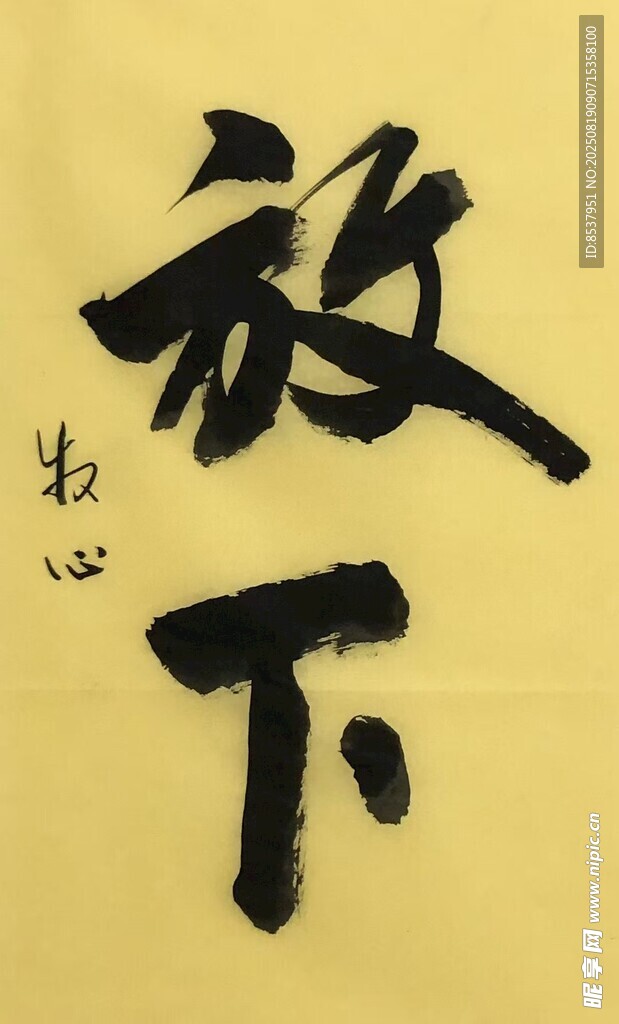 放下
牧心
ID:8537951 NO:20250819090715358100
昵享网 www.nipic.cn